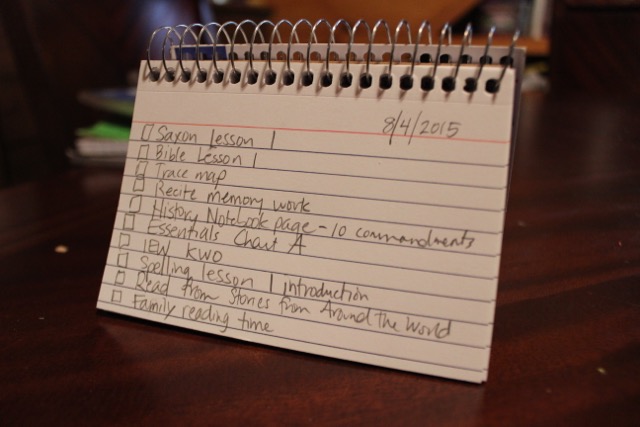 8/4/2015
Saxon Lesson 1
Bible Lesson 1
Trace map
Recite memory work
History Notebook page - 10 commandments
Essentials Chart A
IEW KWO
Spelling lesson 1 introduction
Read from Stories from Around the World
Family reading time